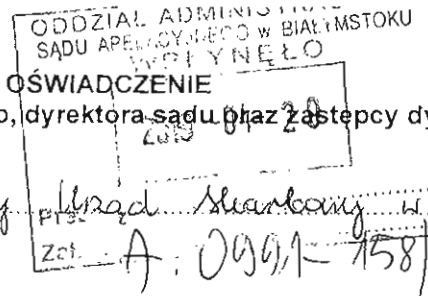 ODDZIAŁ ADMINIST
SĄDU APELACYJNEGO W BIAŁYMSTOKU
WPŁYNĘŁO
OŚWIADCZENIE
o, dyrektora sądu oraz zastępcy dy
01-20
Urząd Skarbowy w
Zał.
A. 0991-158